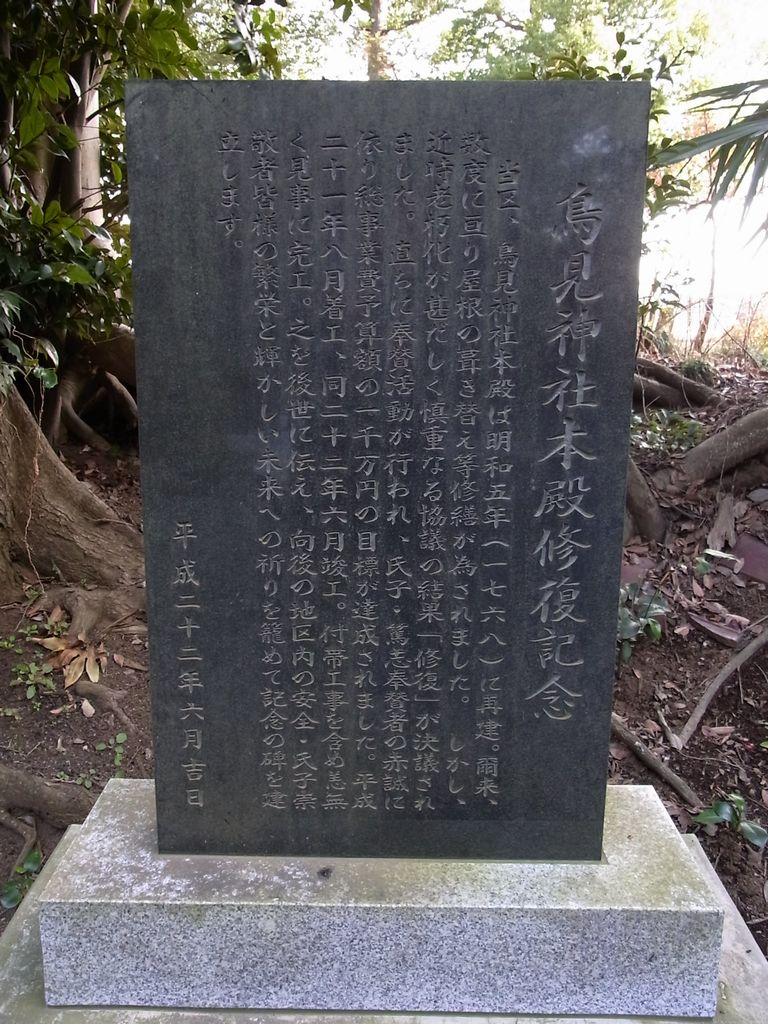 鳥見神社本殿修復記念
当区、鳥見神社本殿は明和五年(一七六八)に再建。爾来、
数度に亘り屋根の葺き替え等修繕が為されました。しかし、
近時老朽化が甚だしく慎重なる協議の結果「修復」が決議され
ました。直ちに奉賛活動が行われ、氏子・篤志奉賛者の赤誠に
依り総事業費予算額の一千万円の目標が達成されました。平成
二十一年八月着工、同二十二年六月竣工。付帯工事を含め恙無
く見事に完工。之を後世に伝え、向後の地区内の安全・氏子崇
敬者皆様の繁栄と輝かしい未来への祈りを籠めて記念の碑を建
立します。
平成二十二年六月吉日